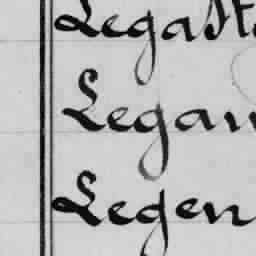 Legast
Legan
Legen